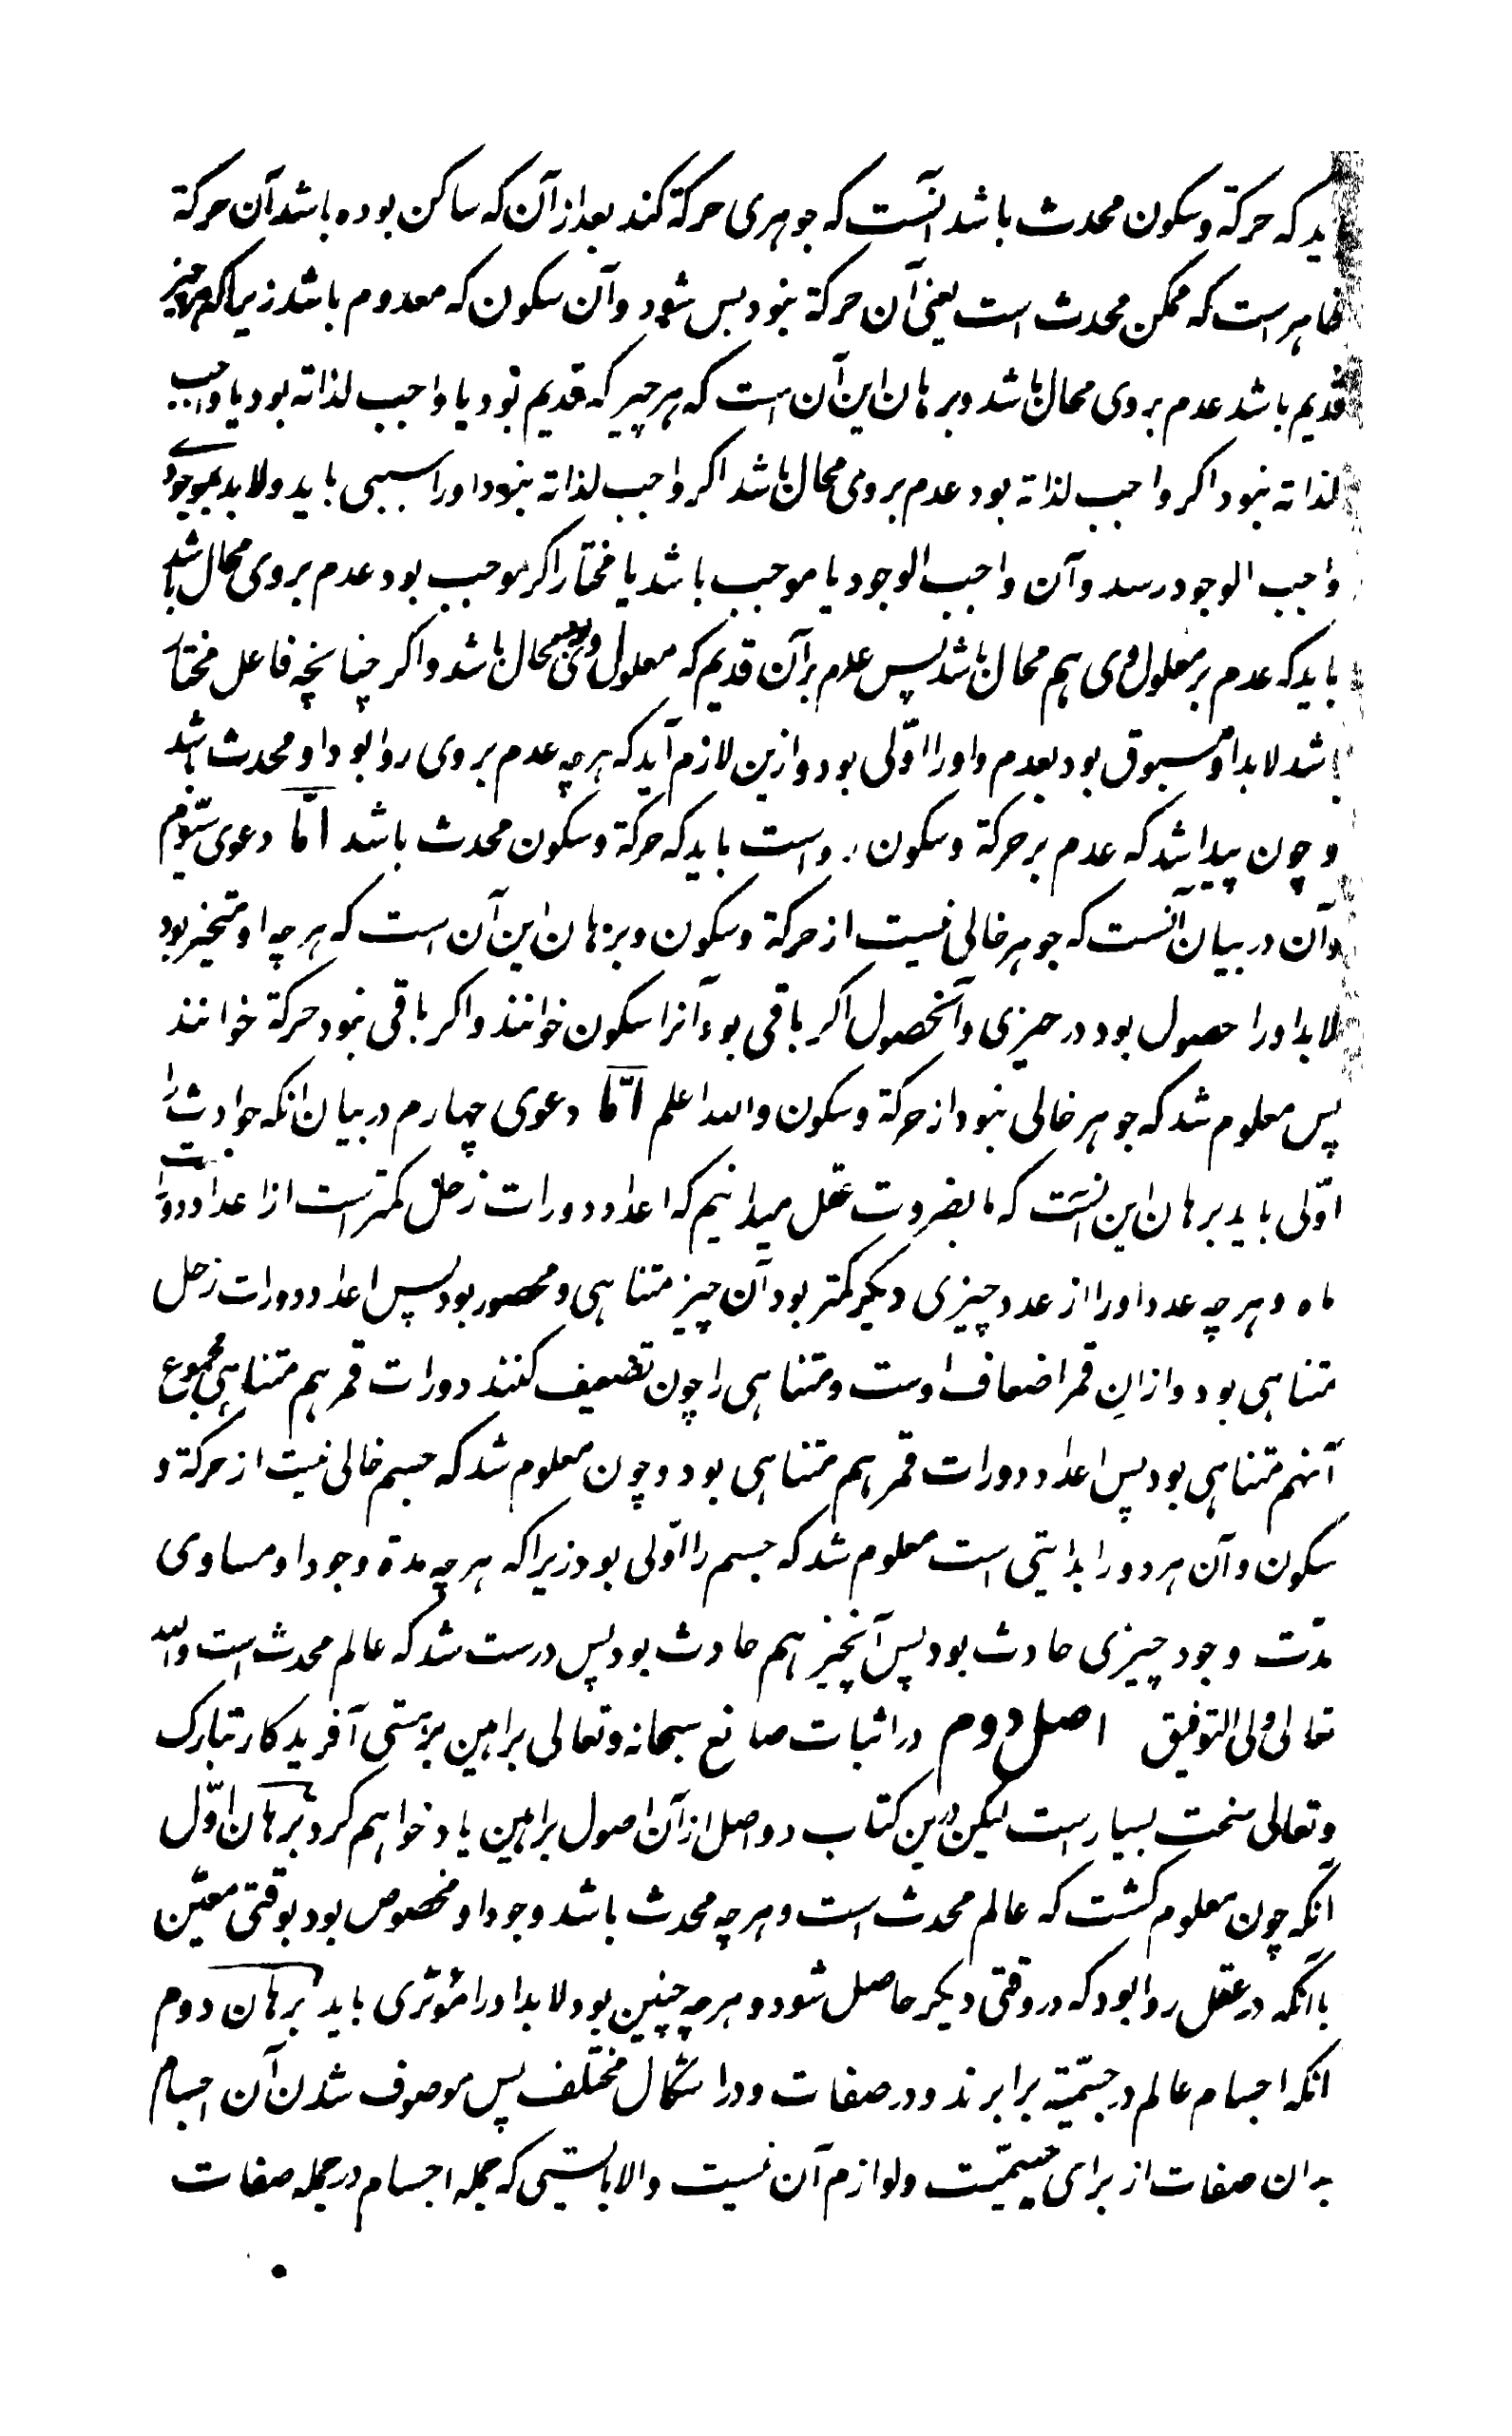 ید که حرکة و سکون محدث باشد آنست که جوهری حرکة کند بعد از آن که ساکن بوده باشد آن حرکة
ظاهر است که ممکن محدث است یعنی آن حرکة نبود پس شود و آن سکون که معدوم باشد زیرا که هر چیز
قدیم باشد عدم بر وی محال باشد و برهان این آن است که هر چیز که قدیم بود یا واجب لذاته بود یا واجب
لذاته نبود اکر واجب لذاته بود عدم بر وی محال باشد اکر واجب لذاته نبود او را سببی باید و لابد بموجودی
واجب الوجود رسد و آن واجب الوجود یا موجب باشد یا مختار اکر موجب بود عدم بر وی محال باشد
باید که عدم بر معلول وی هم محال باشد پس عدم بر آن قدیم که معلول وی محال باشد و اکر چنانچه فاعل مختار
باشد لابد او مسبوق بود بعدم و او را اوّلی بود و ازین لازم آید که هر چه عدم بر وی روا بود او محدث باشد
و چون پیدا شد که عدم بر حرکة و سکون رواست باید که حرکة و سکون محدث باشد امّا دعوی سیّوم
و آن در بیان آنست که جوهر خالی نیست از حرکة و سکون و برهان این آن است که هر چه او متحیز بود
لابد او را حصول بود در حیزی و آنحصول اکر باقی بود آنرا سکون خوانند و اکر باقی نبود حرکة خوانند
پس معلوم شد که جوهر خالی نبود از حرکة و سکون والله اعلم امّا دعوی چهارم در بیان انکه حوادث را
اوّلی باید برهان این آنست که ما بضروت عقل میدانیم که اعداد دورات زحل کمتر است از اعداد دورات
ماه و هر چه عدد او را از عدد چیزی دیکر کمتر بود آن چیز متناهی و محصور بود پس اعداد دورات زحل
متناهی بود و ازان قمر اضعاف اوست و متناهی را چون تضعیف کنند دورات قمر هم متناهی مجموع
آنهم متناهی بود پس اعداد دورات قمر هم متناهی بود و چون معلوم شد که جسم خالی نیست از حرکة و
سکون و آن هر دو را بدایتی است معلوم شد که جسم را اوّلی بود زیرا که هر چه مدة وجود او مساوی
مدّت وجود چیزی حادث بود پس آنچیز هم حادث بود پس درست شد که عالم محدث است والله
تعالی ولی التوفیق اصل دوم در اثبات صانع سبحانه و تعالی براهین بر هستی آفریدکار تبارک
و تعالی سخت بسیار است لیکن درین کتاب دو اصل از آن اصول براهین یاد خواهم کرد برهان اوّل
آنکه چون معلوم کشت که عالم محدث است و هر چه محدث باشد وجود او مخصوص بود بوقتی معیّن
با آنکه در عقل روا بود که در وقتی دیکر حاصل شود و هر چه چنین بود لابد او را مؤثری باید برهان دوم
انکه اجسام عالم در جسمّیة برابرند و در صفات و در اشکال مختلف پس موصوف شدن آن اجسام
بدان صفات از برای جسمّیت و لوازم آن نیست و الا بایستی که جمله اجسام در جمله صفات